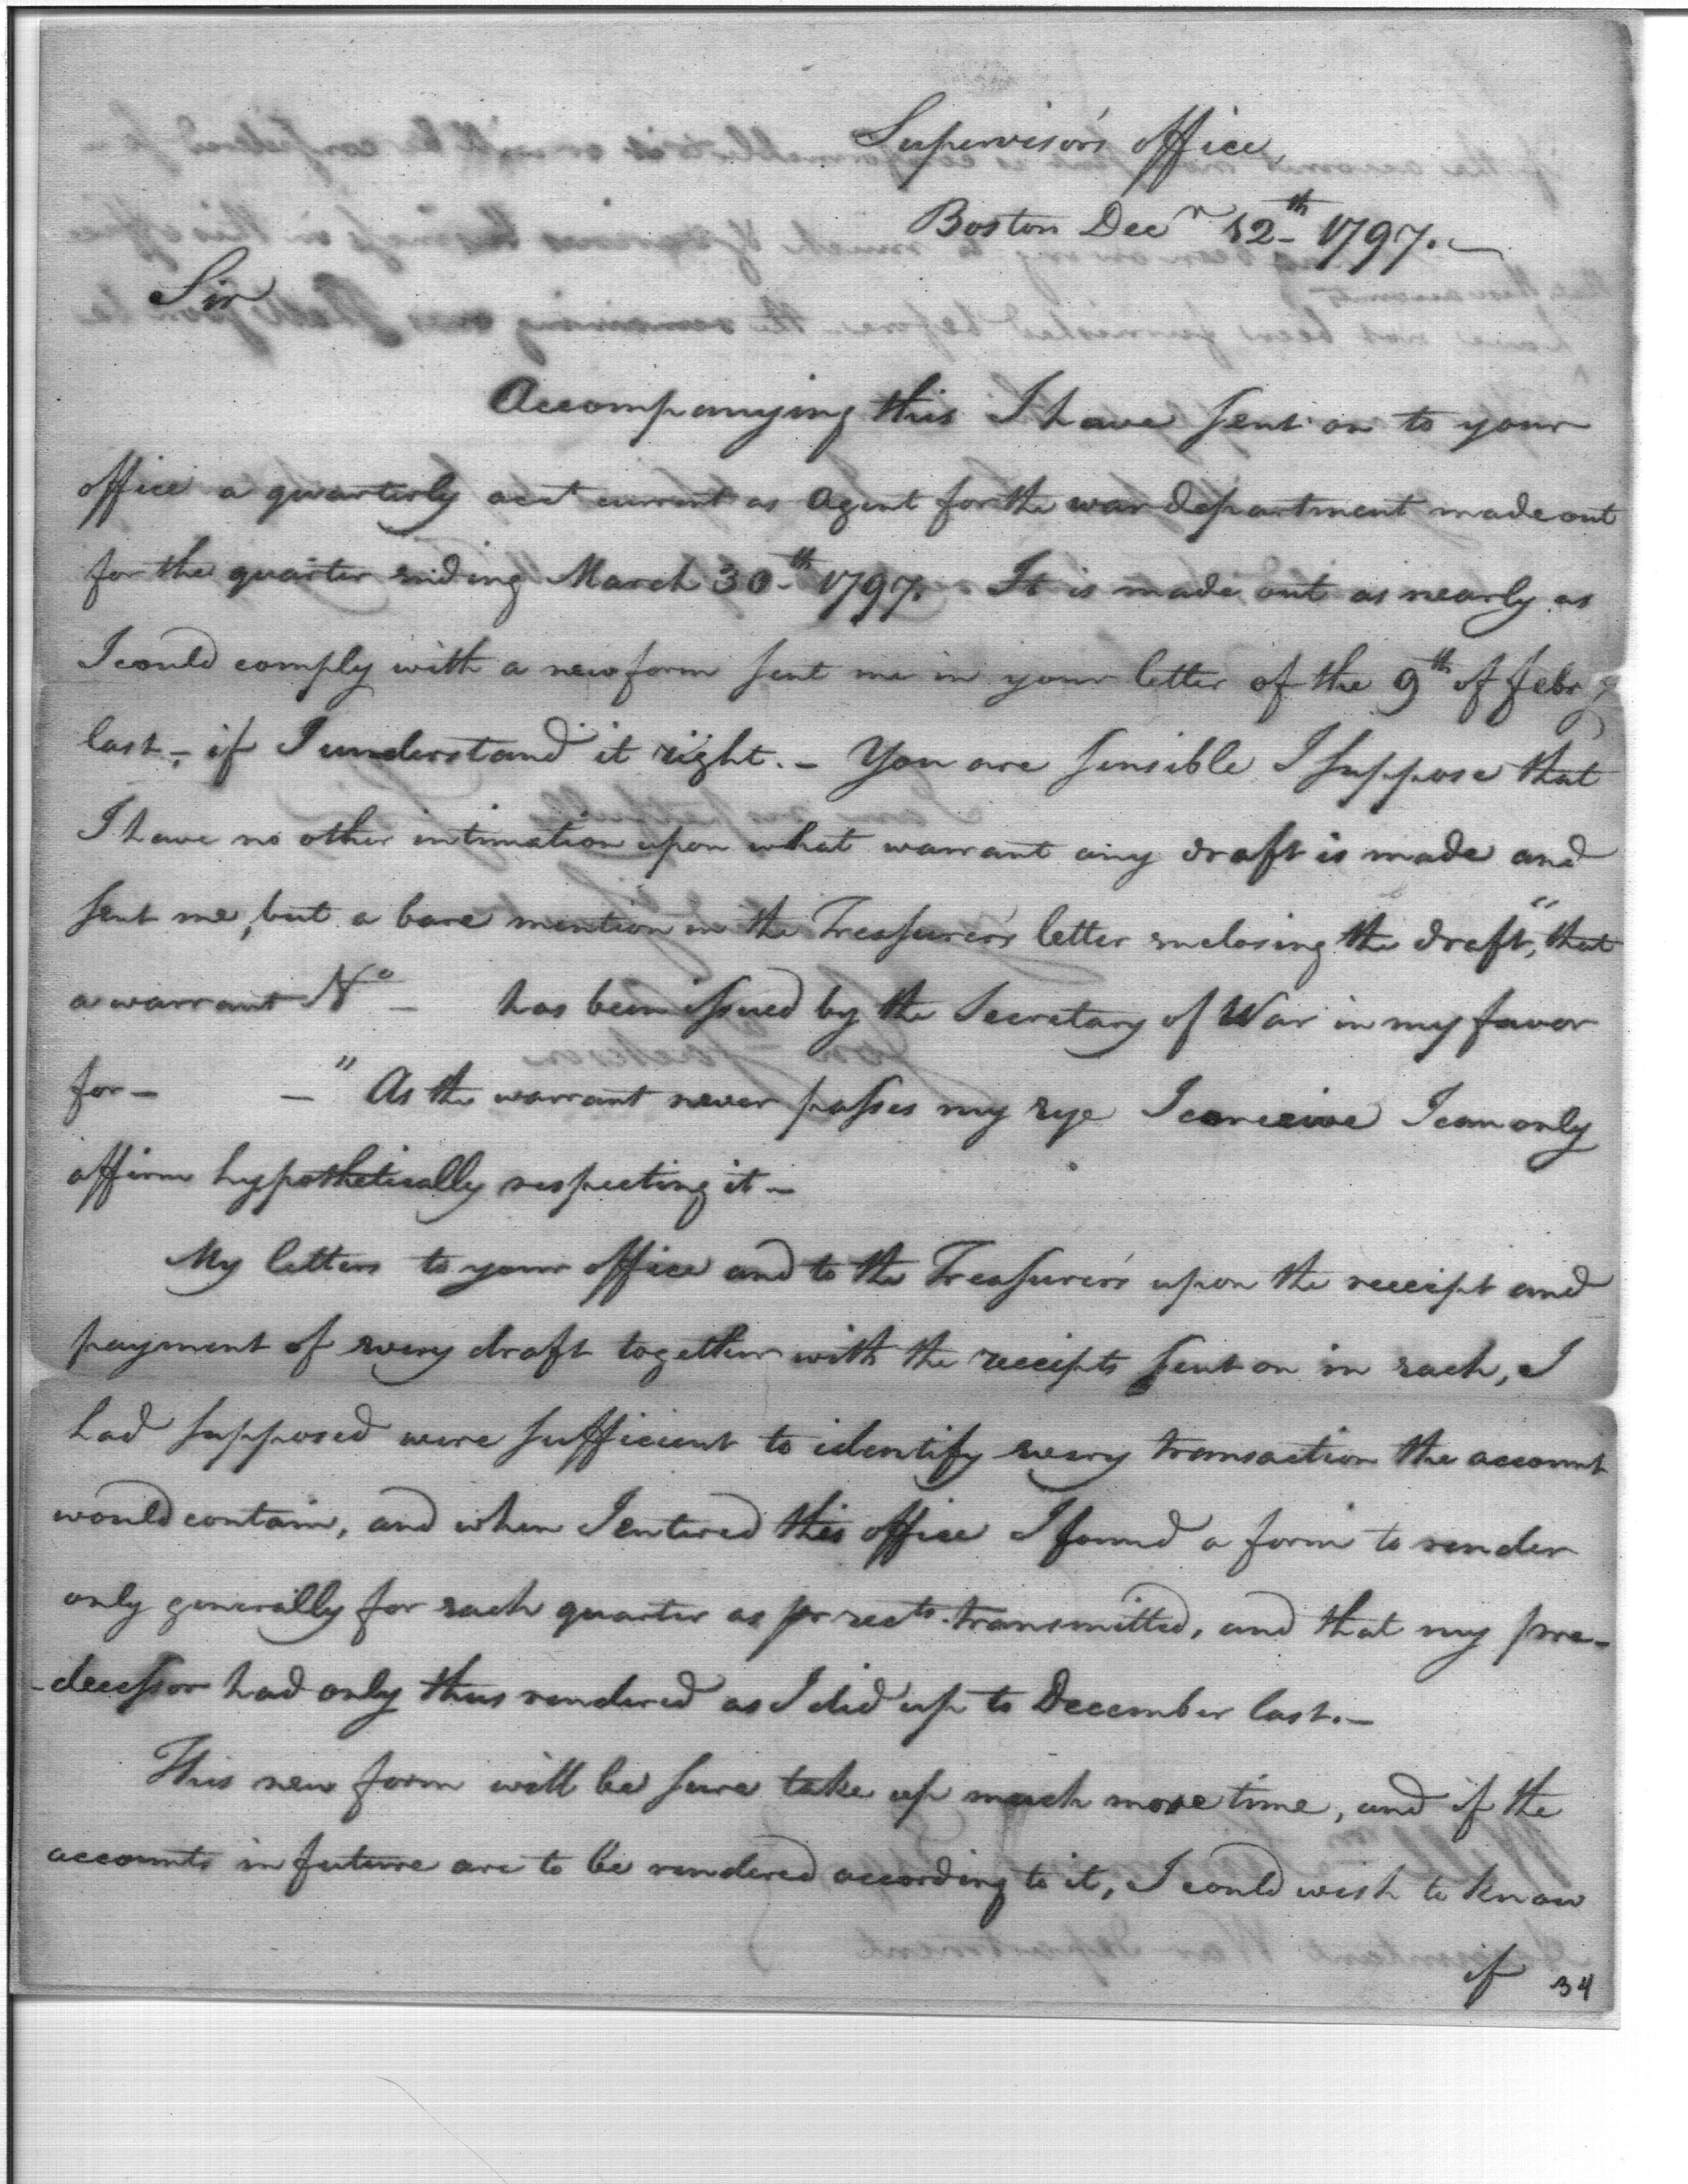 Supervisor's office,
Boston Decr 12th 1797.
Sir
Accompanying this I have sent on to your
office a quarterly acct current as Agent for the war department made out
for the quarter ending March 30th 1797. It is made out as nearly as
I could comply with a new form sent me in your letter of the 9th of febry
last, if I understand it right. - You are sensible I suppose that
I have no other intimation upon what warrant any draft is made and
sent me, but a bare mention in the Treasurer's letter enclosing the draft, "that
a warrant No - has been issued by the Secretary of War in my favor
for - - " As the warrant never passes my eye I conceive I can only
affirm hypothetically respecting it -
My letters to your office and to the Treasurer's upon the receipt and
payment of every draft together with the receipts sent on in each, I
had supposed were sufficient to identify every transaction the account
would contain, and when I entered this office I found a form to render
only generally for each quarter as pr rects transmitted, and that my pre-
-decessor had only thus rendered as I did up to December last. -
This new form will be sure take up much more time, and if the
accounts in future are to be rendered according to it, I could wish to know
if 34